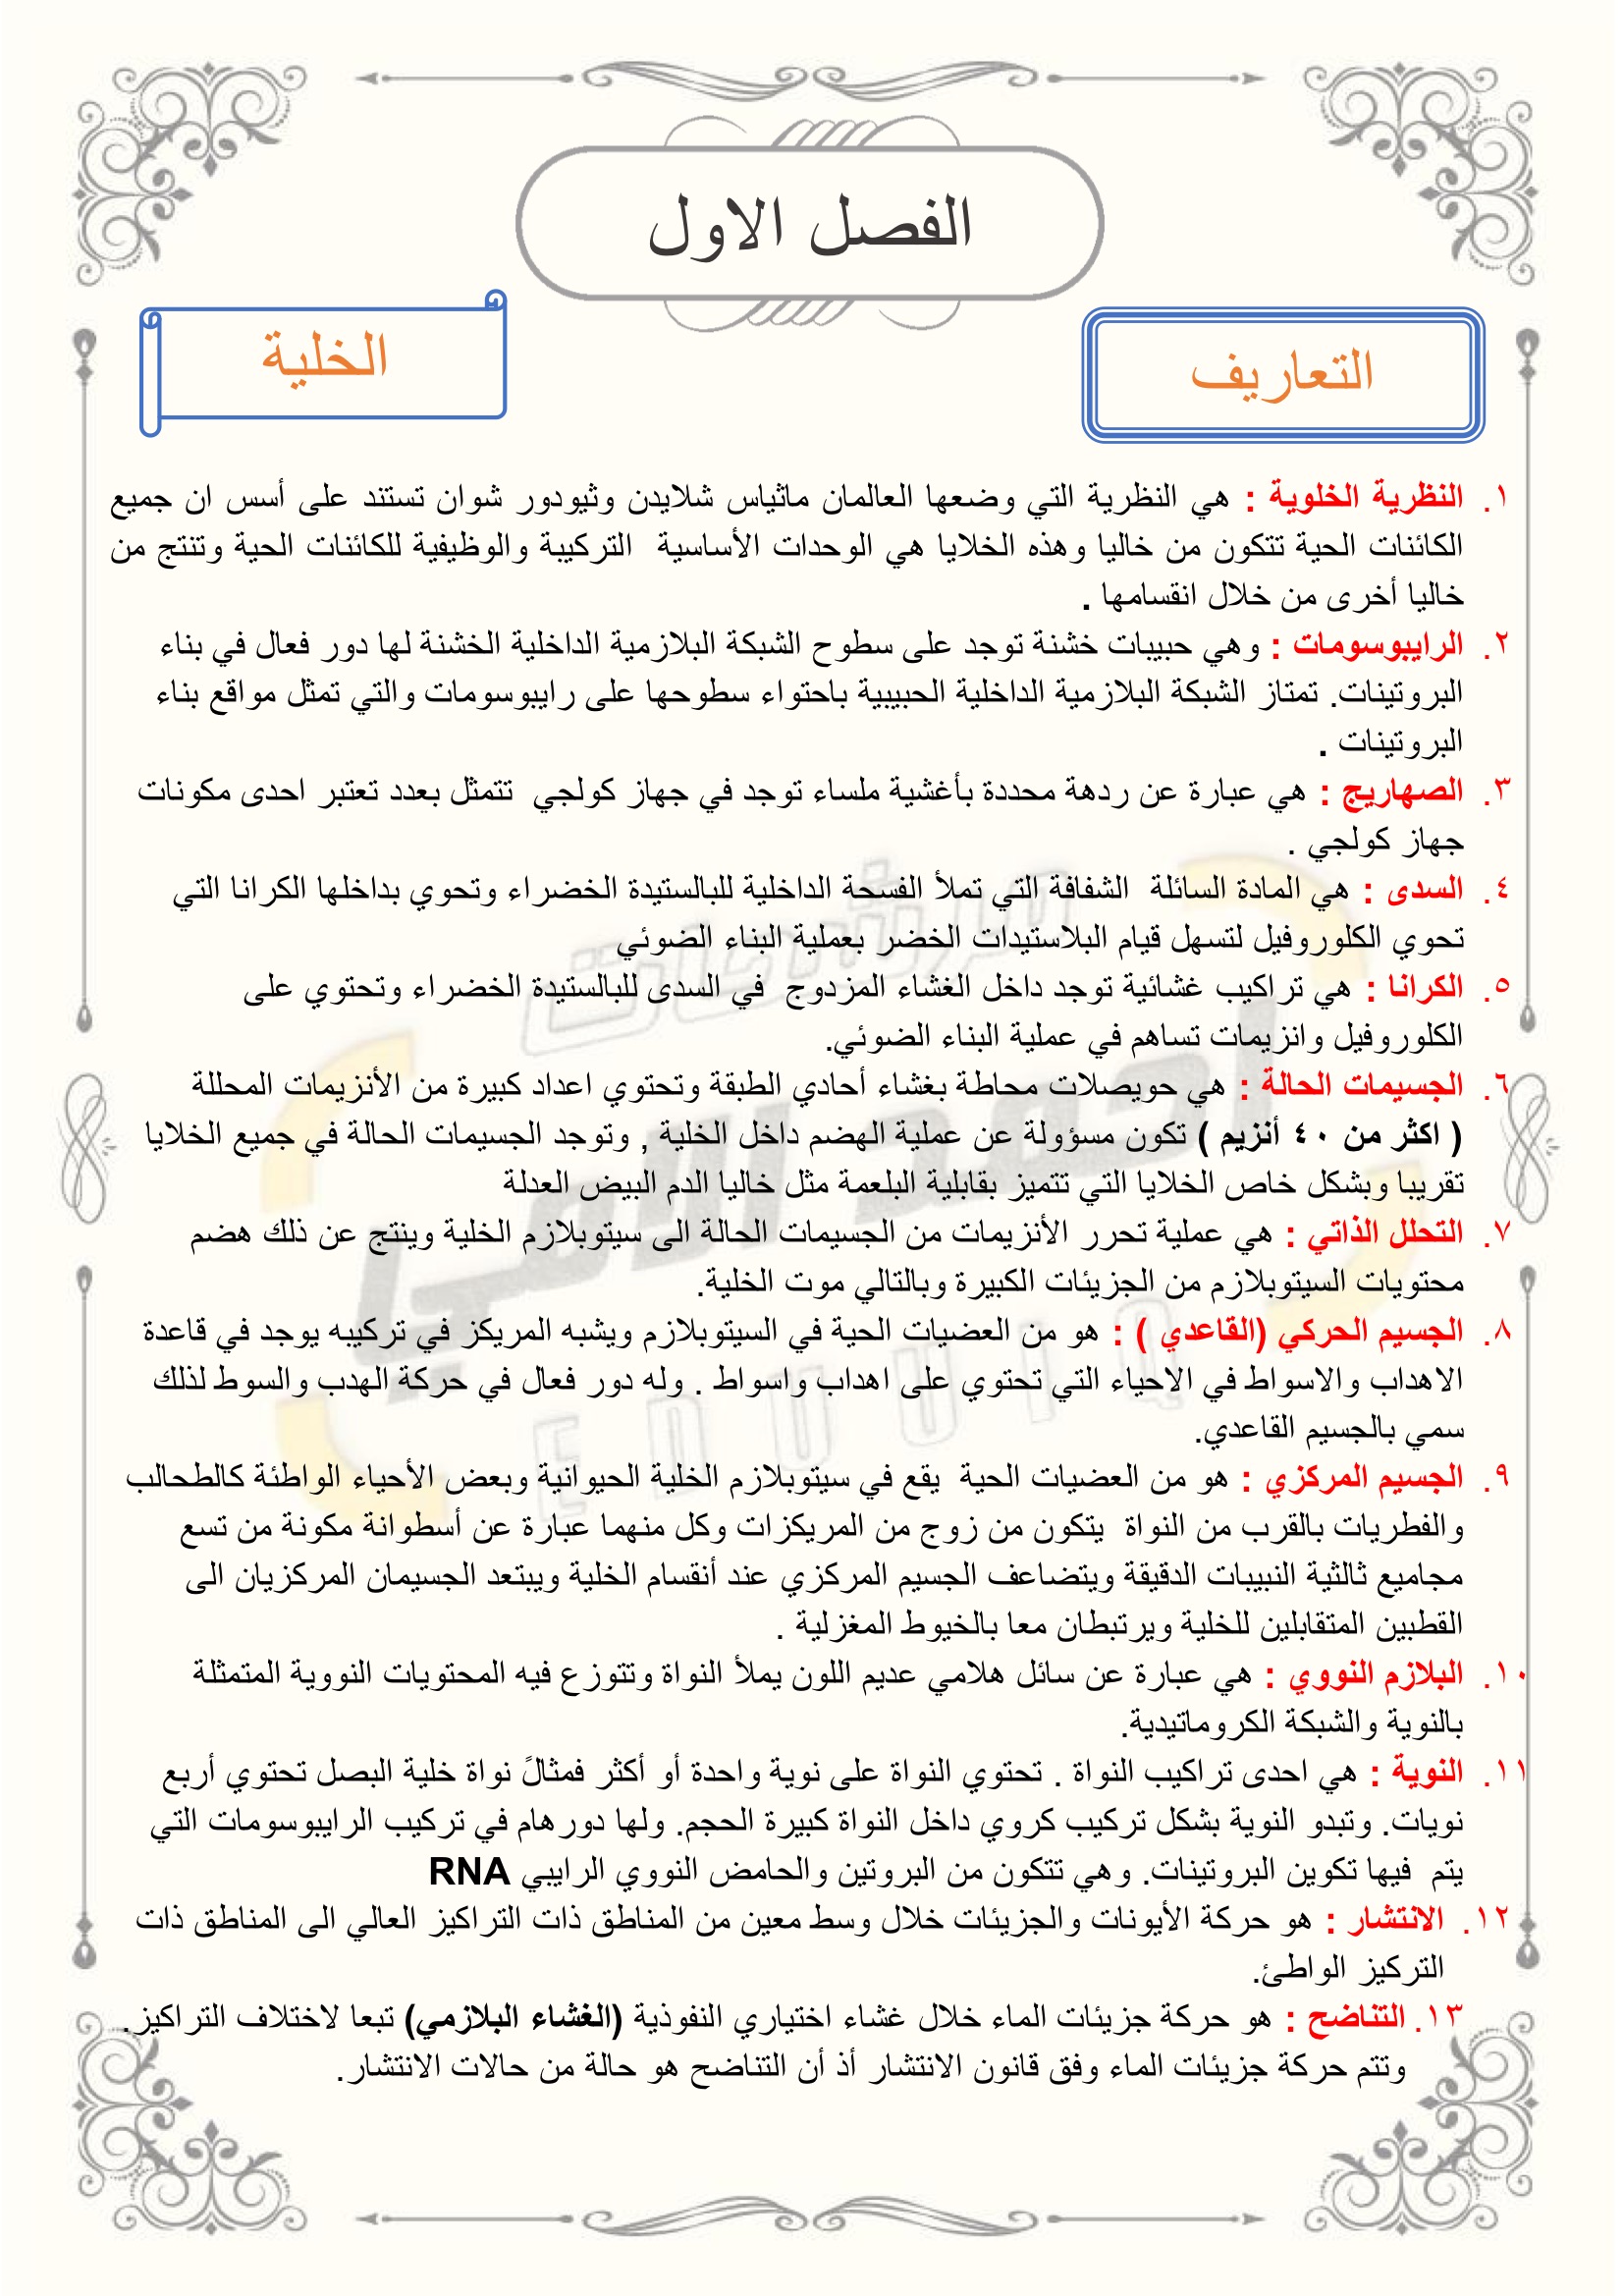 الفصل الاول
التعاريف
الخلية
١. النظرية الخلوية : هي النظرية التي وضعها العالمان ماثياس شلايدن وثيودور شوان تستند على أسس ان جميع
الكائنات الحية تتكون من خاليا وهذه الخلايا هي الوحدات الأساسية التركيبة والوظيفية للكائنات الحية وتنتج من
خاليا أخرى من خلال انقسامها .
٢. الرايبوسومات : وهي حبيبات خشنة توجد على سطوح الشبكة البلازمية الداخلية الخشنة لها دور فعال في بناء
البروتينات. تمتاز الشبكة البلازمية الداخلية الحبيبية باحتواء سطوحها على رايبوسومات والتي تمثل مواقع بناء
البروتينات .
٣. الصهاريج : هي عبارة عن ردهة محددة بأغشية ملساء توجد في جهاز كولجي تتمثل بعدد تعتبر احدى مكونات
جهاز كولجي .
٤. السدى : هي المادة السائلة الشفافة التي تملأ الفسحة الداخلية للبالستيدة الخضراء وتحوي بداخلها الكرانا التي
تحوي الكلوروفيل لتسهل قيام البلاستيدات الخضر بعملية البناء الضوئي
٥. الكرانا : هي تراكيب غشائية توجد داخل الغشاء المزدوج في السدى للبالستيدة الخضراء وتحتوي على
الكلوروفيل وانزيمات تساهم في عملية البناء الضوئي.
٦. الجسيمات الحالة : هي حويصلات محاطة بغشاء أحادي الطبقة وتحتوي اعداد كبيرة من الأنزيمات المحللة
( اكثر من ٤٠ أنزيم ) تكون مسؤولة عن عملية الهضم داخل الخلية , وتوجد الجسيمات الحالة في جميع الخلايا
تقريبا وبشكل خاص الخلايا التي تتميز بقابلية البلعمة مثل خاليا الدم البيض العدلة
٧. التحلل الذاتي : هي عملية تحرر الأنزيمات من الجسيمات الحالة الى سيتوبلازم الخلية وينتج عن ذلك هضم
محتويات السيتوبلازم من الجزيئات الكبيرة وبالتالي موت الخلية.
٨. الجسيم الحركي (القاعدي ) : هو من العضيات الحية في السيتوبلازم ويشبه المريكز في تركيبه يوجد في قاعدة
الاهداب والاسواط في الاحياء التي تحتوي على اهداب واسواط . وله دور فعال في حركة الهدب والسوط لذلك
سمي بالجسيم القاعدي.
٩. الجسيم المركزي : هو من العضيات الحية يقع في سيتوبلازم الخلية الحيوانية وبعض الأحياء الواطئة كالطحالب
والفطريات بالقرب من النواة يتكون من زوج من المريكزات وكل منهما عبارة عن أسطوانة مكونة من تسع
مجاميع ثالثية النبيبات الدقيقة ويتضاعف الجسيم المركزي عند أنقسام الخلية ويبتعد الجسيمان المركزيان الى
القطبين المتقابلين للخلية ويرتبطان معا بالخيوط المغزلية .
١٠. البلازم النووي : هي عبارة عن سائل هلامي عديم اللون يملأ النواة وتتوزع فيه المحتويات النووية المتمثلة
بالنوية والشبكة الكروماتيدية.
١١. النوية : هي احدى تراكيب النواة . تحتوي النواة على نوية واحدة أو أكثر فمثالً نواة خلية البصل تحتوي أربع
نويات. وتبدو النوية بشكل تركيب كروي داخل النواة كبيرة الحجم. ولها دورهام في تركيب الرايبوسومات التي
يتم فيها تكوين البروتينات. وهي تتكون من البروتين والحامض النووي الرايبي RNA
١٢. الانتشار : هو حركة الأيونات والجزيئات خلال وسط معين من المناطق ذات التراكيز العالي الى المناطق ذات
التركيز الواطئ.
١٣. التناضح : هو حركة جزيئات الماء خلال غشاء اختياري النفوذية (الغشاء البلازمي) تبعا لاختلاف التراكيز.
وتتم حركة جزيئات الماء وفق قانون الانتشار أذ أن التناضح هو حالة من حالات الانتشار.
مرشحات
احمد الامي
EDUUIQ